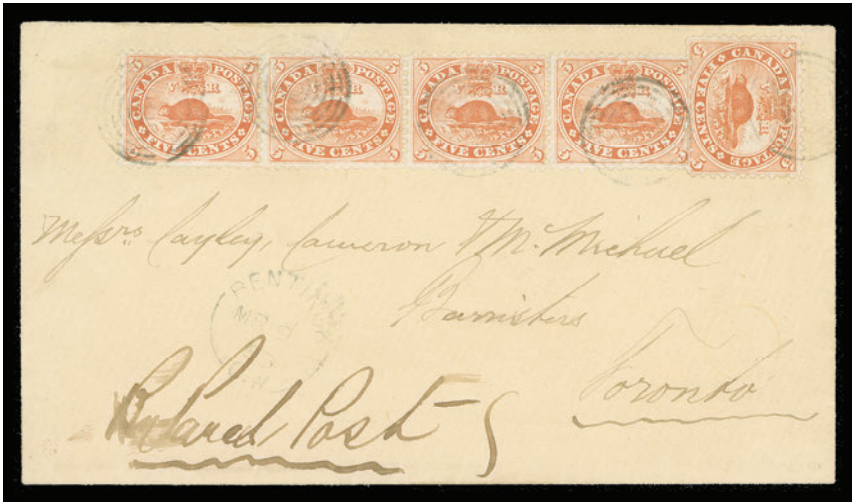 5 CANADA POSTAGE 5
V R
5 FIVE CENTS 5
5 CANADA POSTAGE 5
V R
5 FIVE CENTS 5
5 CANADA POSTAGE 5
V R
5 FIVE CENTS 5
5 CANADA POSTAGE 5
V R
5 FIVE CENTS 5
5 CANADA POSTAGE 5
V R
5 FIVE CENTS 5
Messrs Cayley, Cameron & McMichael
Barristers
Toronto
Parcel Post